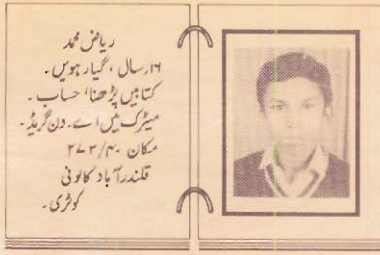 ریاض محمد
۱۶ رسال ، گیارہویں ۔
کتابیں پڑھنا ، حساب ۔
میٹرک میں اے ۔ ون گریڈ ۔
مکان ۲۷۲/۴۰
قلندر آباد کالونی
کوٹری ۔